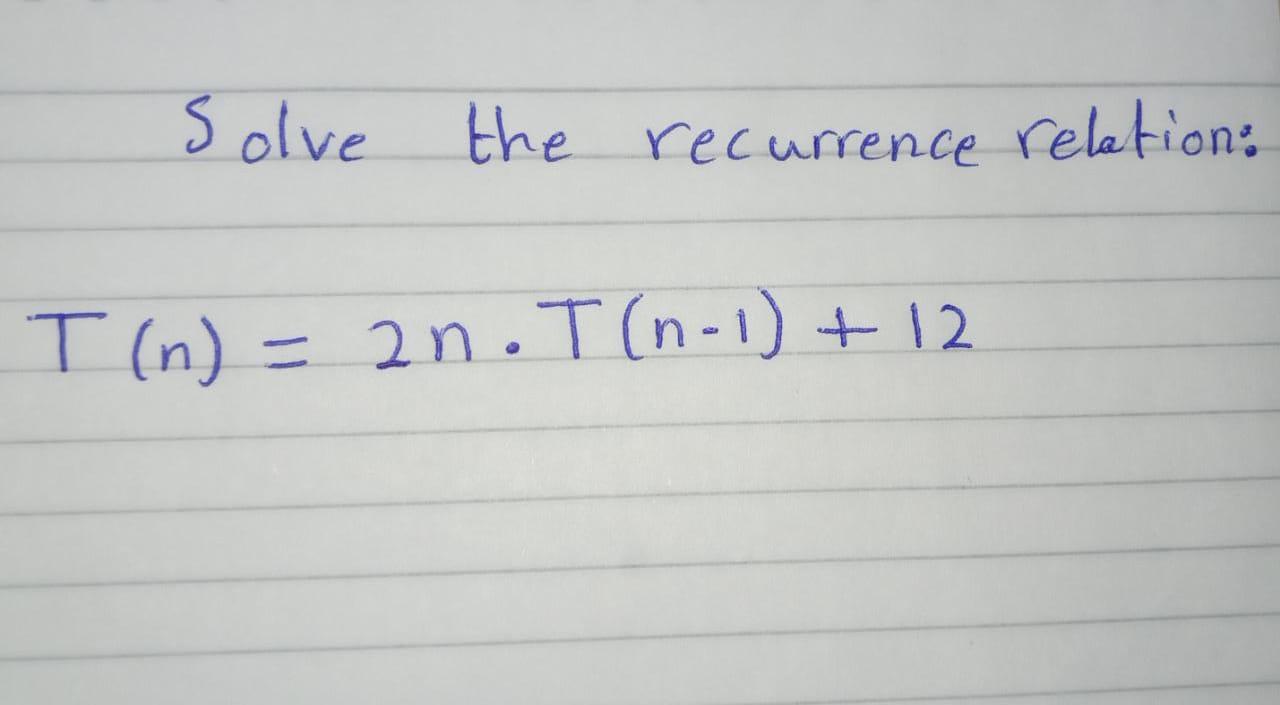 Solve the recurrence relation:
T(n) = 2n . T(n-1) + 12